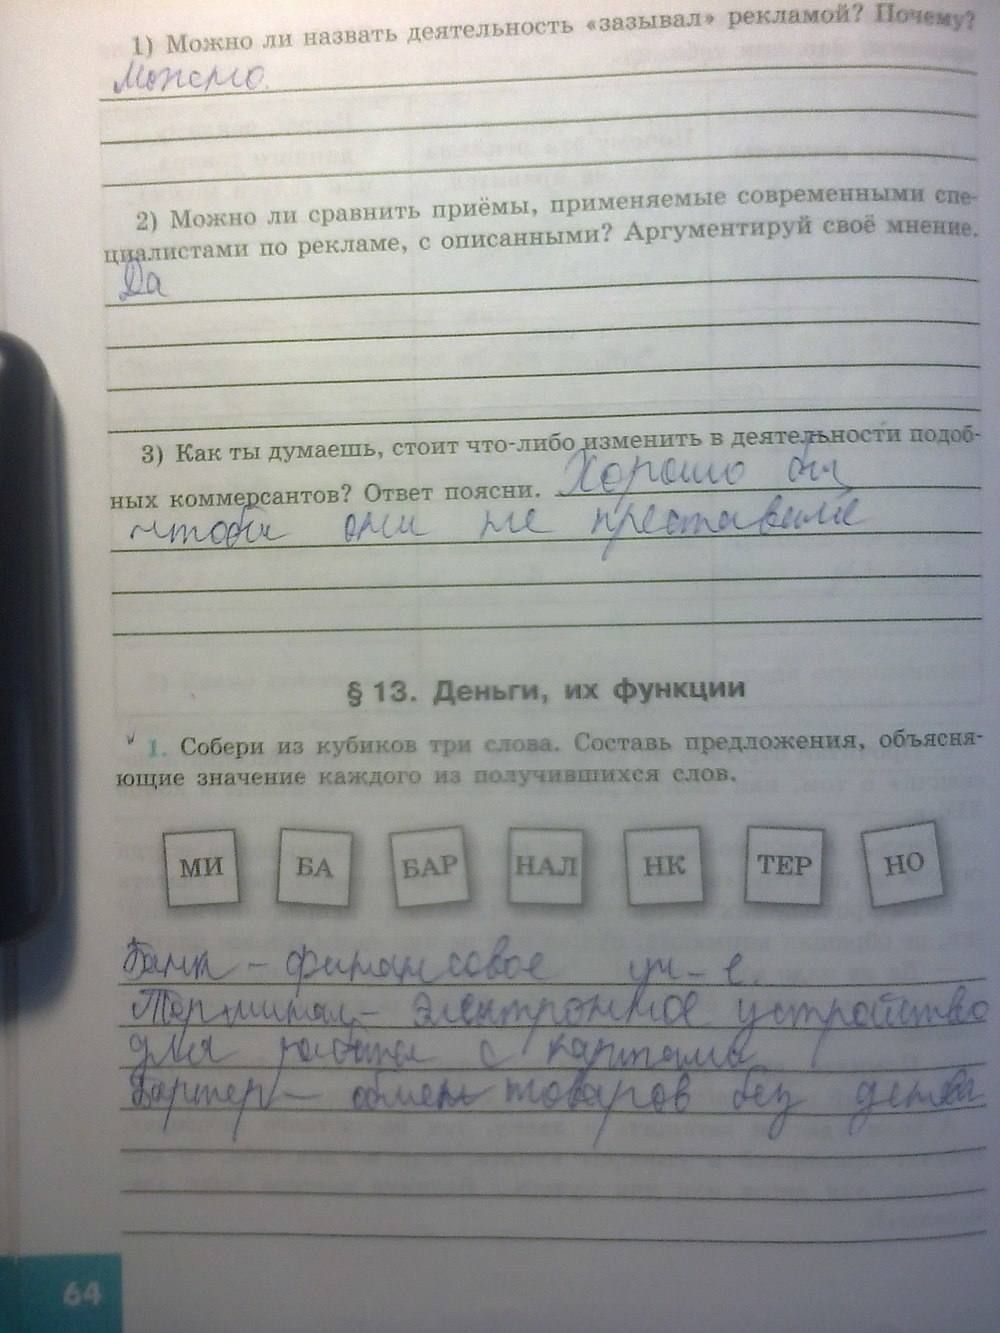 1) Можно ли назвать деятельность «зазывал» рекламой? Почему?
Можно.
2) Можно ли сравнить приёмы, применяемые современными спе-
циалистами по рекламе, с описанными? Аргументируй своё мнение.
Да
3) Как ты думаешь, стоит что-либо изменить в деятельности подоб-
ных коммерсантов? Ответ поясни. Хорошо бы
чтобы они не
§ 13. Деньги, их функции
1. Собери из кубиков три слова. Составь предложения, объясня-
ющие значение каждого из получившихся слов.
МИ БА БАР НАЛ НК ТЕР НО
Банк – финансовое уч-е.
Терминал – электронное устройство
для работы с картами
Бартер – обмен товаров без денег
64